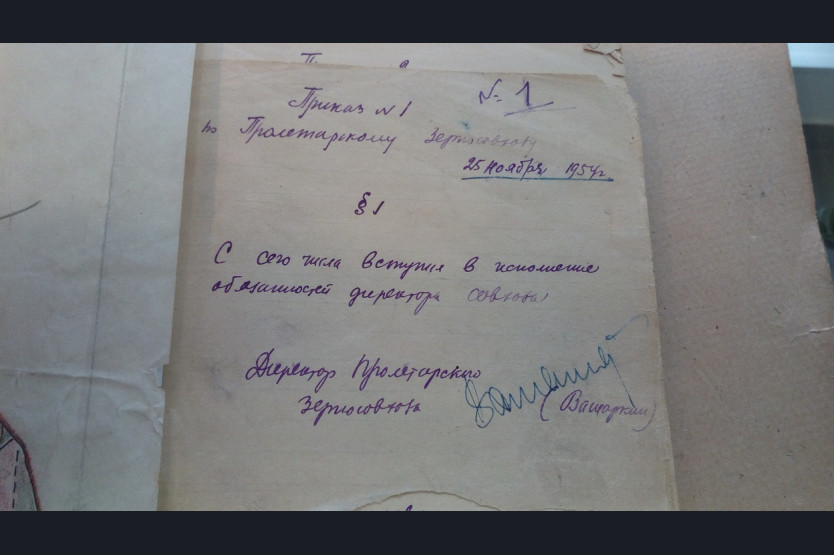 Приказ №1
№ 1
по Пролетарскому Зерносовхозу
25 ноября 1954г.
§ 1
С сего числа вступил в исполнение
обязанностей директора совхоза
Директор Пролетарского
Зерносовхоза